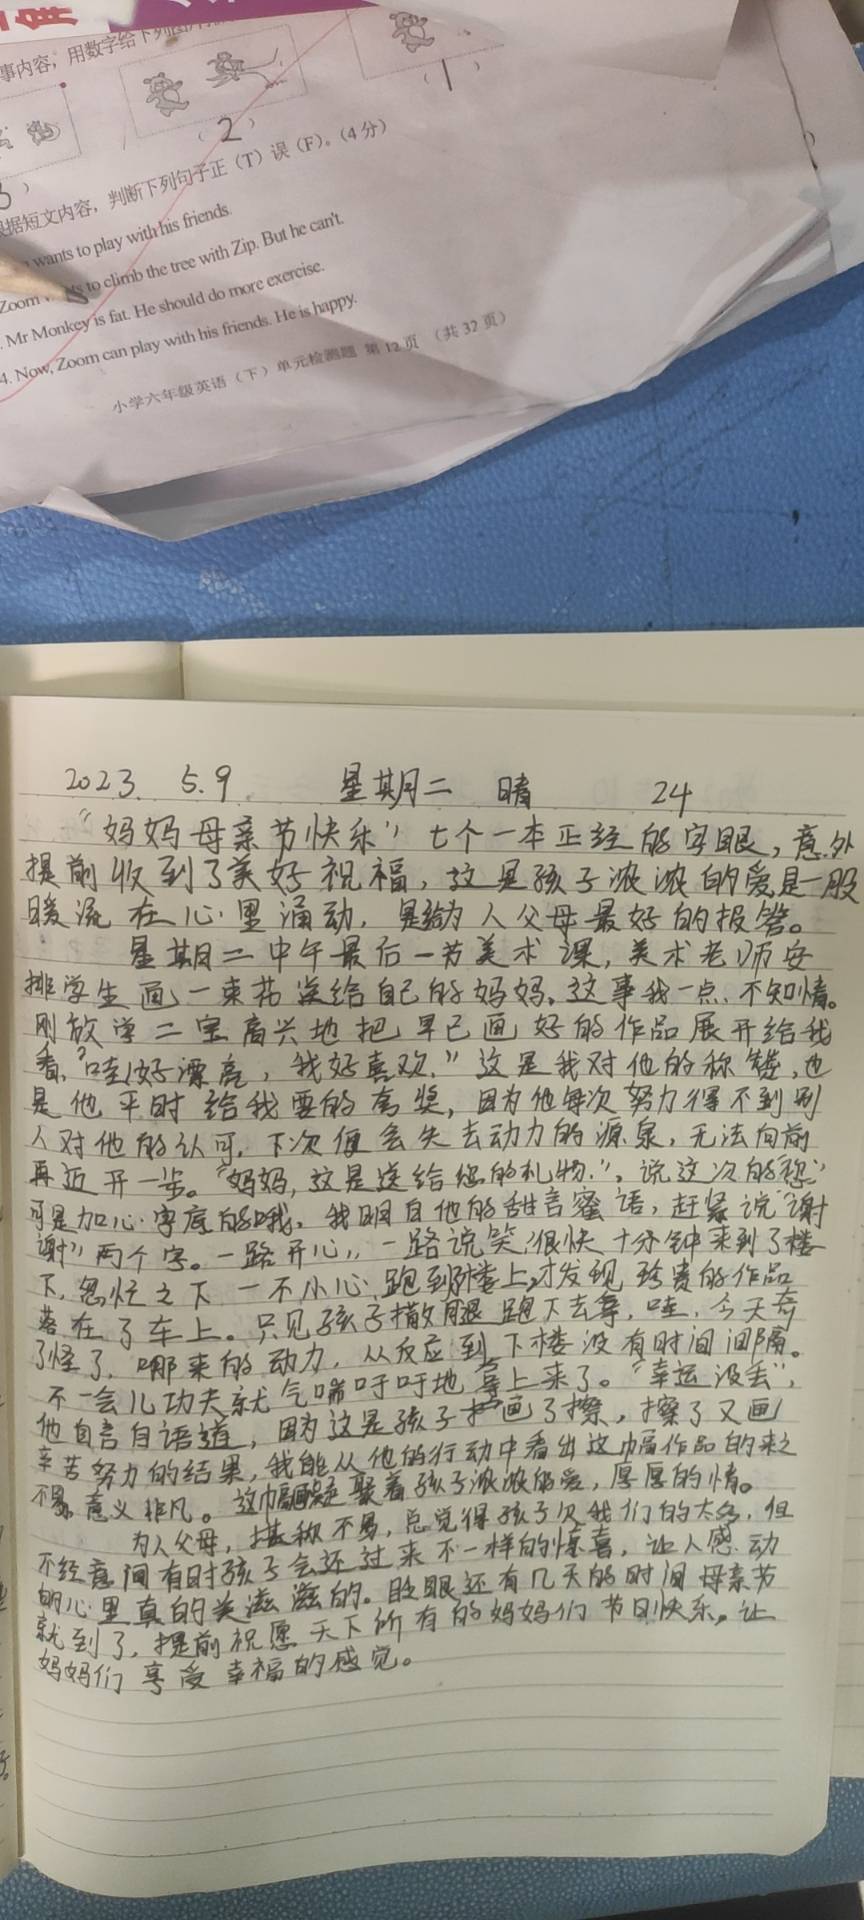 事内容，用数字给下列图
(2)
(1)
3)
根据短文内容，判断下列句子正（T）误（F）。（4分）
wants to play with his friends.
Zoom to climb the tree with Zip. But he can't.
. Mr Monkey is fat. He should do more exercise.
4. Now, Zoom can play with his friends. He is happy.
小学六年级英语（下）单元检测题 第12页 （共32页）
2023. 5.9. 星期二 晴 24
“妈妈母亲节快乐”七个一本正经的字眼，意外
提前收到了美好祝福，这是孩子浓浓的爱是一股
暖流在心里涌动，是给为人父母最好的报答。
星期二中午最后一节美术课，美术老师安
排学生画一束花送给自己的妈妈。这事我一点不知情。
刚放学二宝高兴地把早已画好的作品展开给我
看，“哇！好漂亮，我好喜欢。”这是我对他的称赞，也
是他平时给我要的夸奖，因为他每次努力得不到别
人对他的认可，下次便会失去动力的源泉，无法向前
再迈开一步。“妈妈，这是送给您的礼物。”，说这次的“您”
可是加心字底的哦。我明白他的甜言蜜语，赶紧说“谢
谢”两个字。一路开心，一路说笑，很快十分钟来到了楼
下，匆忙之下一不小心，跑到楼上，才发现珍贵的作品
落在了车上。只见孩子撒腿跑下去拿，哇，今天奇
了怪了，哪来的动力，从反应到下楼没有时间间隔。
不一会儿功夫就气喘吁吁地拿上来了。“幸运没丢”，
他自言自语道，因为这是孩子画了擦，擦了又画
辛苦努力的结果，我能从他的行动中看出这幅作品的来之
不易，意义非凡。这幅画凝聚着孩子浓浓的爱，厚厚的情。
为人父母，堪称不易，总觉得孩子欠我们的太多，但
不经意间有时孩子会还过来不一样的惊喜，让人感动
的心里真的美滋滋的。眨眼还有几天的时间母亲节
就到了，提前祝愿天下所有的妈妈们节日快乐，让
妈妈们享受幸福的感觉。